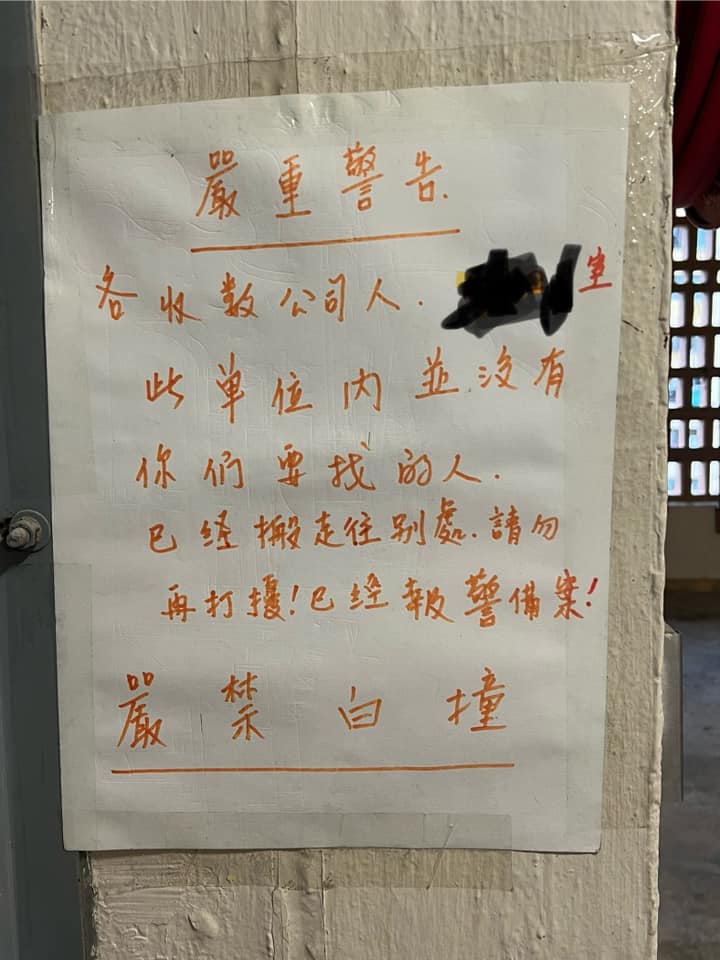 嚴重警告.
各收数公司人. 室
此单位内並没有
你们要找的人.
已经搬走往别處.請勿
再打擾!已经報警備案!
嚴禁白撞